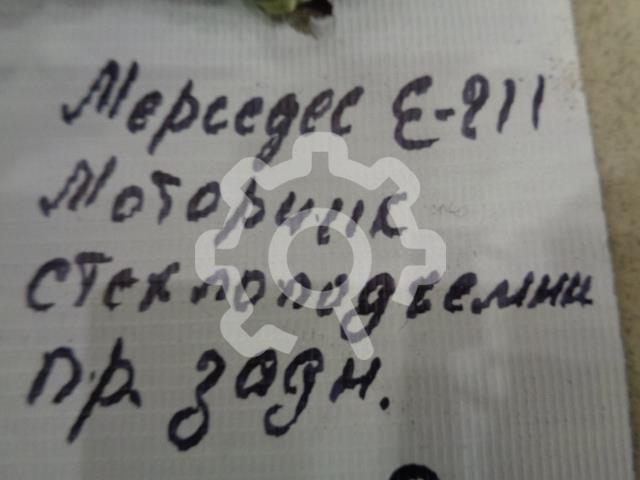 Мерседес Е-211
Моторчик
стеклоподъемни
пр. задн.